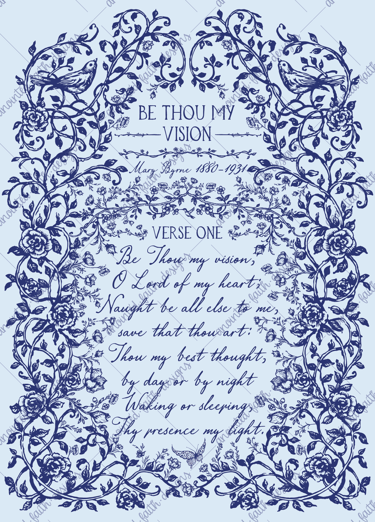 BE THOU MY
VISION
Mary Byrne 1880-1931
VERSE ONE
Be Thou my vision,
O Lord of my heart;
Naught be all else to me,
save that thou art:
Thou my best thought,
by day or by night
Waking or sleeping,
Thy presence my light.